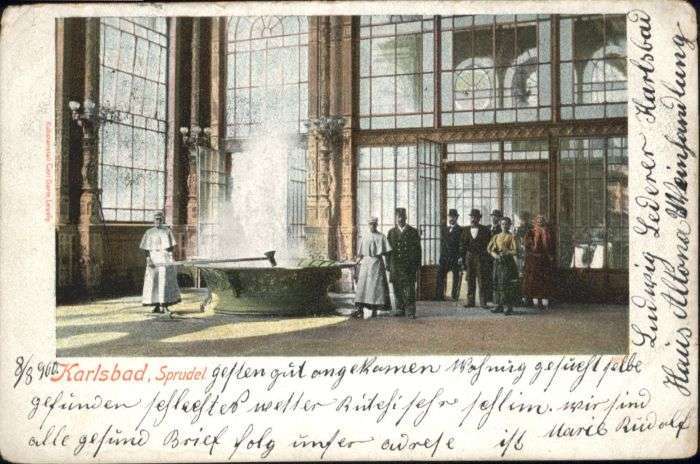 Karlsbad, Sprudel
8/8 900. gesten gut angekamen Wohnug gesucht selbe
gefunden schlechtes wetter Rutchi sehr schlim. wir sind
alle gesund Brief folg unser adrese ist Maria Rudolf
Ludwig Lederer Karlsbad
Haus Altona Weinhandlung